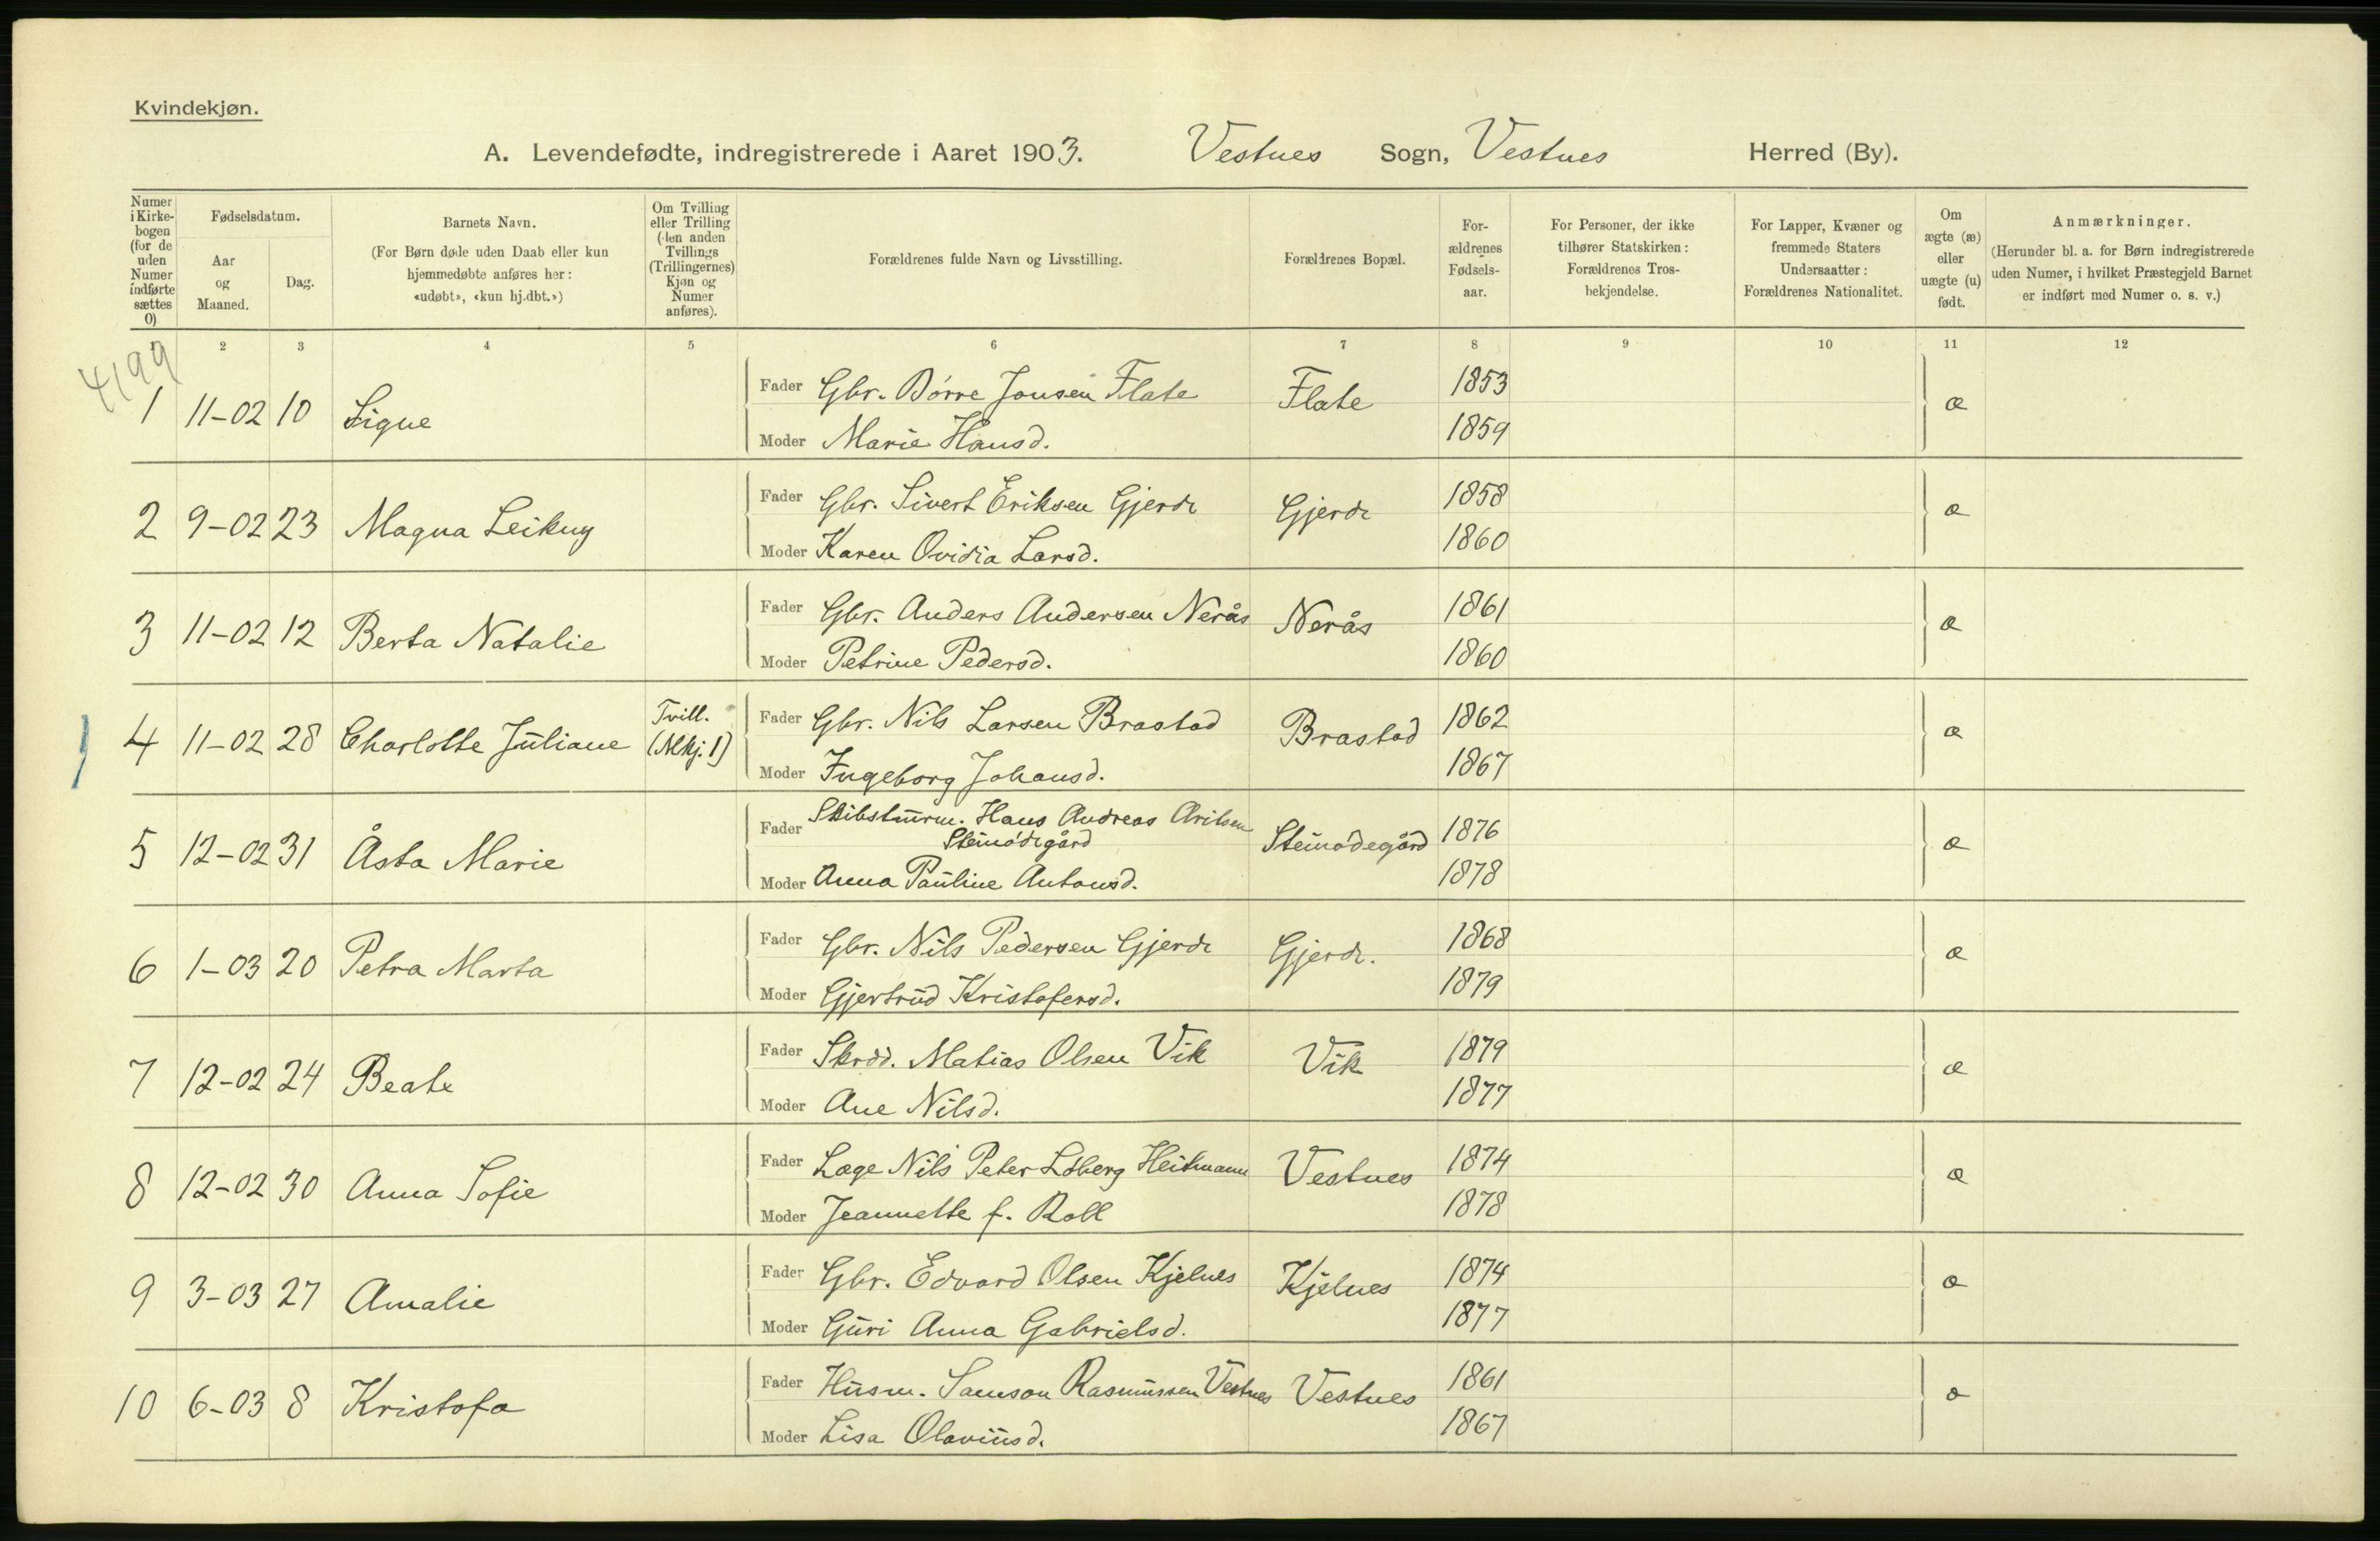 Kvindekjøn.
A. Levendefødte, indregistrerede i Aaret 1903. Vestnes Sogn, Vestnes Herred (By).
Numer i Kirkebogen (for de uden Numer indførte sættes 0)
Fødselsdatum.
Aar og Maaned.
Dag.
Barnets Navn.
(For Børn døde uden Daab eller kun
hjemmedøbte anføres her:
«udøbt», «kun hj.dbt.»)
Om Tvilling
eller Trilling
(den anden
Tvillings
(Trillingernes)
Kjøn og
Numer
anføres).
Forældrenes fulde Navn og Livsstilling.
Forældrenes Bopæl.
For-
ældrenes
Fødsels-
aar.
For Personer, der ikke
tilhører Statskirken:
Forældrenes Tros-
bekjendelse.
For Lapper, Kvæner og
fremmede Staters
Undersaatter:
Forældrenes Nationalitet.
Om
ægte (æ)
eller
uægte (u)
født.
Anmærkninger.
(Herunder bl. a. for Børn indregistrerede
uden Numer, i hvilket Præstegjeld Barnet
er indført med Numer o. s. v.)
2 3 4 5 6 7 8 9 10 11 12
4199
1 11-02 10 Signe Fader Gbr. Børre Jonsen Flate Flate 1853 æ
Moder Marie Hansd. 1859
2 9-02 23 Magna Leikny Fader Gbr. Sivert Eriksen Gjerde Gjerde 1858 æ
Moder Karen Ovidia Larsd. 1860
3 11-02 12 Berta Natalie Fader Gbr. Anders Andersen Nerås Nerås 1861 æ
Moder Petrine Pedersd. 1860
4 11-02 28 Charlotte Juliane Tvill. (Mkj. 1) Fader Gbr. Nils Larsen Brastad Brastad 1862 æ
Moder Ingeborg Johansd. 1867
5 12-02 31 Åsta Marie Fader Skibstømrm. Hans Andreas
Steinødegård Steinødegård 1876 æ
Moder Anna Pauline Antonsd. 1878
6 1-03 20 Petra Marta Fader Gbr. Nils Pedersen Gjerde Gjerde. 1868 æ
Moder Gjertrud Kristofersd. 1879
7 12-02 24 Beate Fader Skrdd. Matias Olsen Vik Vik 1879 æ
Moder Ane Nilsd. 1877
8 12-02 30 Anna Sofie Fader Læge Nils Peter Heitmann Vestnes 1874 æ
Moder Jeannette f. Roll 1878
9 3-03 27 Amalie Fader Gbr. Edvard Olsen Kjelnes Kjelnes 1874 æ
Moder Guri Anna Gabrielsd. 1877
10 6-03 8 Kristofa Fader Husm. Samson Rasmussen Vestnes Vestnes 1861 æ
Moder Lisa Olaviusd. 1867